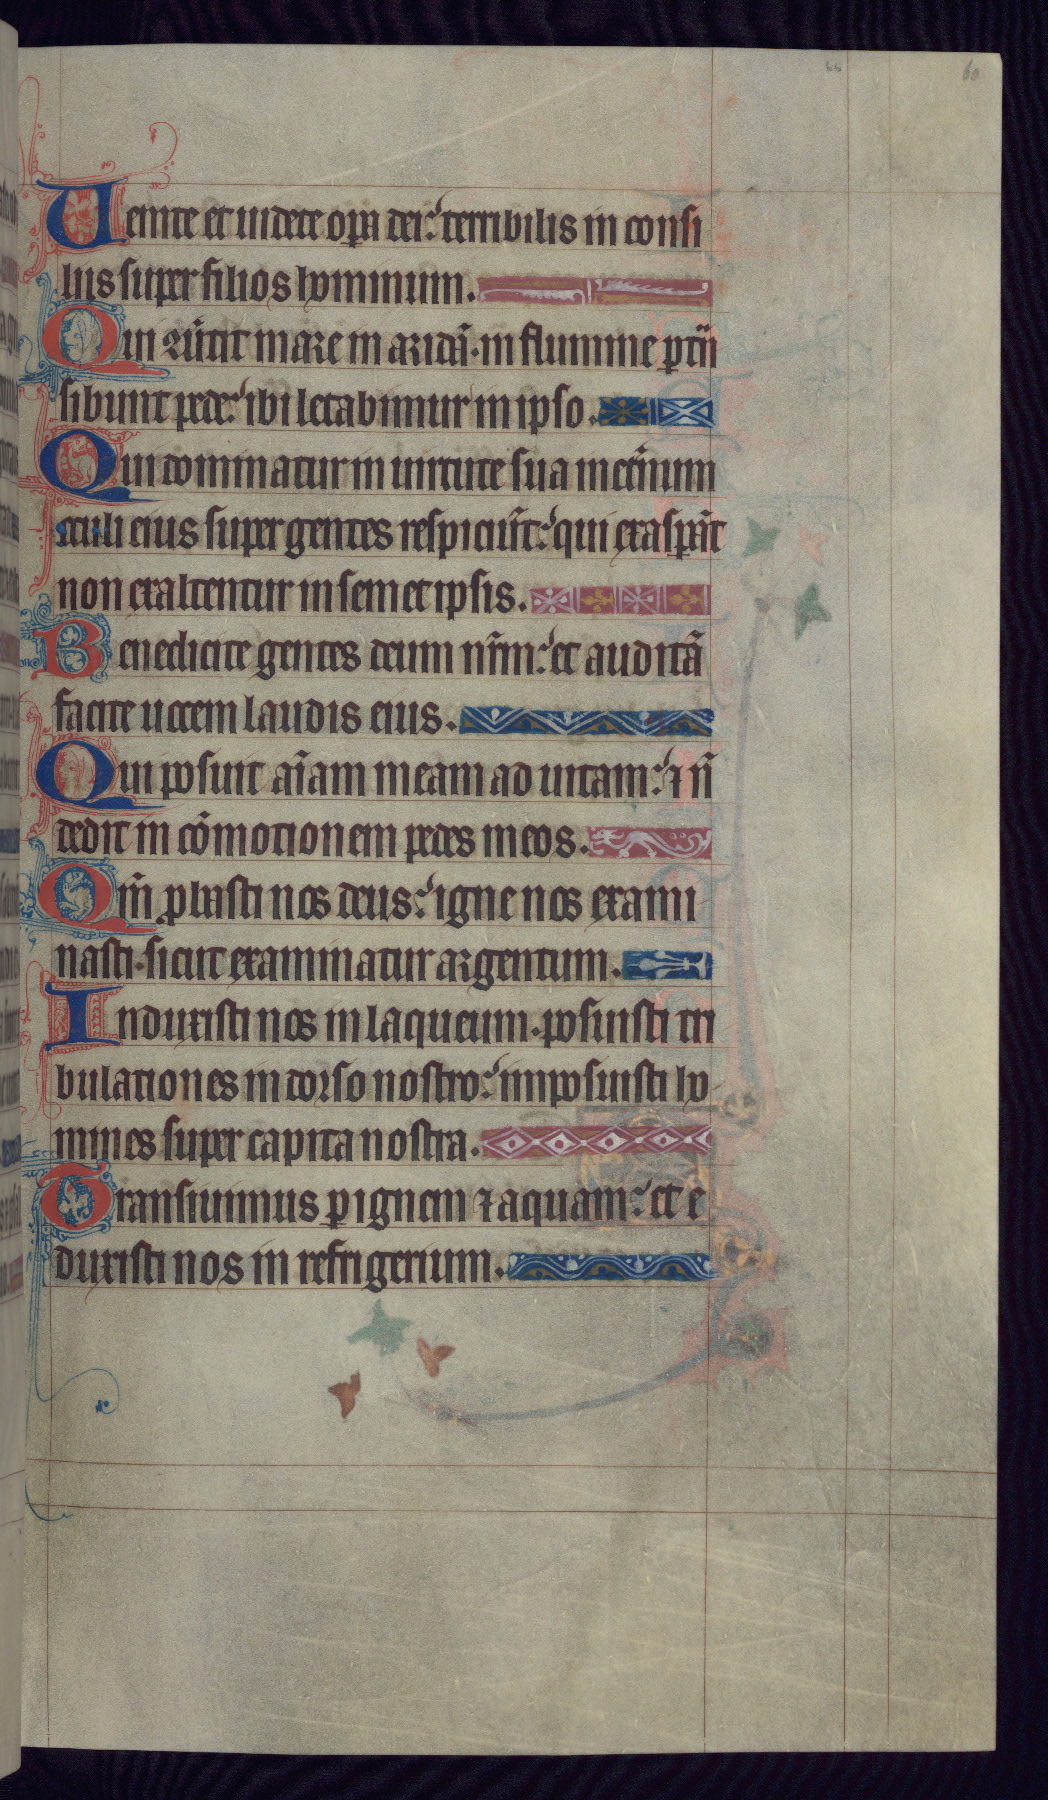 60
Uenite et uidete opa dei: terribilis in consi
liis super filios hominum.
Qui ꝯũtit mare in aridã· in flumine ꝑtñ
sibunt pede: ibi letabimur in ipso.
Qui dominatur in uirtute sua in et̃num
oculi eius super gentes respiciũt: qui exasꝑãt
non exaltentur in semet ipsis.
Benedicite gentes deum nr̃m: et auditã
facite uocem laudis eius.
Qui posuit aĩam meam ad uitam: ⁊ ñ
dedit in cõmotionem pedes meos.
Qm̃ ꝓbasti nos deus: igne nos exami
nasti· sicut examinatur argentum.
Induxisti nos in laqueum· posuisti tri
bulationes in dorso nostro: imposuisti ho-
mines super capita nostra.
Transiuimus ꝑ ignem ⁊ aquam: et e
duxisti nos in refrigerium.